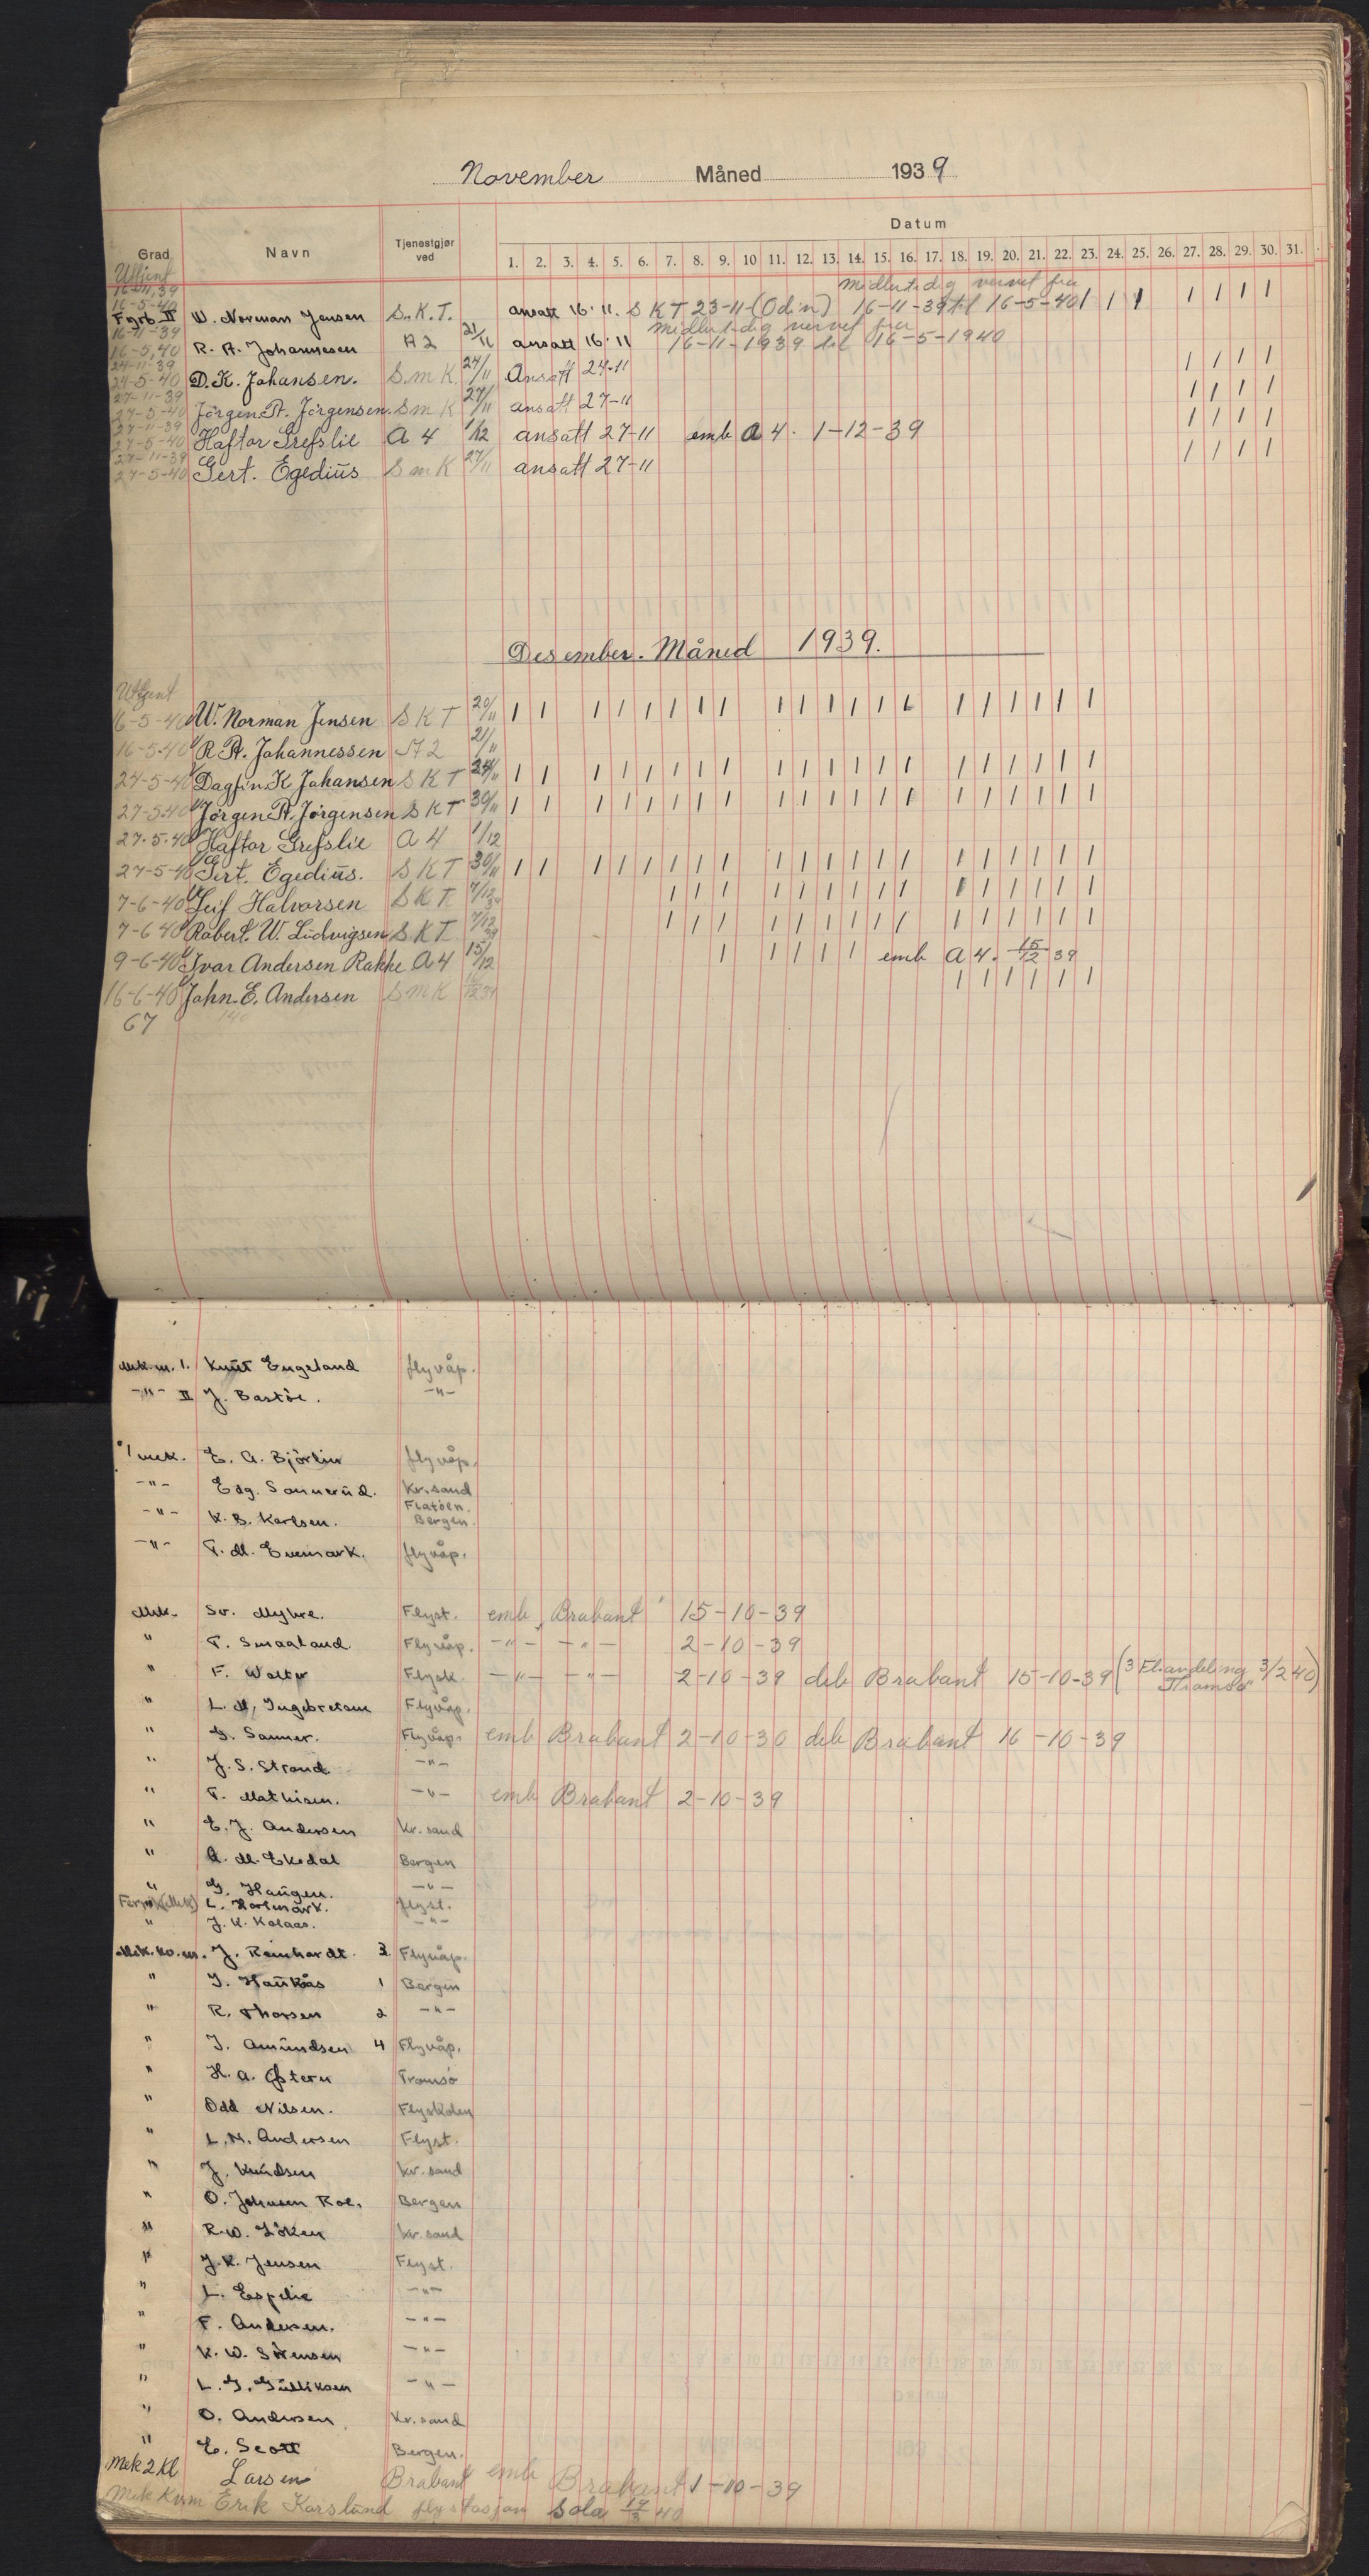 November Måned 1939
Datum
Grad Navn Tjenestgjør ved 1. 2. 3. 4. 5. 6. 7. 8. 9. 10 11. 12. 13. 14. 15. 16. 17. 18. 19. 20. 21. 22. 23. 24. 25. 26. 27. 28. 29. 30. 31.
Utljent
16-11-39 midlertidig vervet fra
16-5-40
Fyrb. II W. Norman Jensen S.K.T. ansatt 16.11. S K T 23-11 (Odin) 16-11-39 til 16-5-40 1 1 1 1 1 1 1
16-11-39 midlertidig vervet fra
16-5,40 R. A. Johannesen A 2 21/11 ansatt 16.11 16-11-1939 til 16-5-1940
24-11-39
24-5-40 D. K. Johansen. S.m K. 24/11 Ansatt 24-11 1 1 1 1
27-11-39
27-5-40 Jörgen A. Jörgensen. S m K 27/11 ansatt 27-11 1 1 1 1
27-11-39
27-5-40 Haftor Grefslie A 4 1/12 ansatt 27-11 emb A 4. 1-12-39 1 1 1 1
27-11-39
27-5-40 Gert. Egedius S m K 27/11 ansatt 27-11 1 1 1 1
Desember. Måned 1939.
Utljent
16-5-40 W. Norman Jensen S K T 20/11 1 1 1 1 1 1 1 1 1 1 1 1 1 1 1 1 1 1 1 1
16-5-40 R. A. Johannessen A 2 21/11
24-5-40 Dagfin K Johansen S K T 24/11 1 1 1 1 1 1 1 1 1 1 1 1 1 1 1 1 1 1 1 1
27-5-40 Jörgen A. Jörgensen S K T 30/11 1 1 1 1 1 1 1 1 1 1 1 1 1 1 1 1 1 1 1 1
27-5-40 Haftor Grefslie A 4 1/12
27-5-40 Gert. Egedius. S K T 30/11 1 1 1 1 1 1 1 1 1 1 1 1 1 1 1 1 1 1 1 1
7-6-40 Leif Halvorsen S K T. 7/12 39 1 1 1 1 1 1 1 1 1 1 1 1 1 1 1
7-6 40 Robert. W. Ludvigsen S K T 7/12 39 1 1 1 1 1 1 1 1 1 1 1 1 1 1 1
9-6-40 Ivar Andersen Rakke A 4 15/12 1 1 1 1 1 emb A 4. 15/12 39
16-6-40 John. E. Andersen S m K 1 1 1 1 1 1
67 140
Mek. m. 1. Knut Engeland flyvåp.
-"- II J. Bastöe. -"-
1 mek. E. A. Björlin flyvåp.
-"- Edg. Sonnerud. Kr.sand
-"- K. B. Karlsen. Flatöen. Bergen.
-"- T. M. Evenmark. flyvåp.
Mek. Sv. Myhre. Flyst. emb „Brabant" 15-10-39
" T. Smaaland Flyvåp. -"- -"- 2-10-39
" F. Walter Flysk. -"- -"- 2-10-39 deb Brabant 15-10-39 (3 Fl.avdeling "Tromsö" 3/2 40)
" L. M. Ingebretsen Flyvåp.
" G. Sanner. Flyvåp. emb Brabant 2-10-30 deb Brabant 16-10-39
" J. S. Strand -"-
" T. Mathisen. -"- emb Brabant 2-10-39
" E. J. Andersen Kr.sand
" A. M. Ekedal Bergen
" G. Haugen. -"-
" L. Holmark. flyst.
" J. K. Kolaas. -"-
Mek. kv. m. J. Reinhardt. 3 Flyvåp.
" J. Haukås 1 Bergen
" R. Thorsen 2 -"-
" J. Amundsen 4 Flyvåp.
" H. A. Østern Tromsö
" Odd Nilsen. Flyskolen
" L. M. Andersen Flyst.
" J. Knudsen Kr.sand
" O. Johnsen Roe. Bergen
" R. W. Löken Kr.sand
" J. K. Jensen Flyst.
" L. Espelie -"-
" F. Andersen. -"-
" K. W. Sörensen -"-
" L. G. Gulliksen -"-
" O. Andersen Kr.sand
" E. Scott Bergen.
Mek 2 Kl Larsen Brabant emb Brabant 1-10-39
Mek Kvm Erik Karslund flystasjon Sola 19/3 40